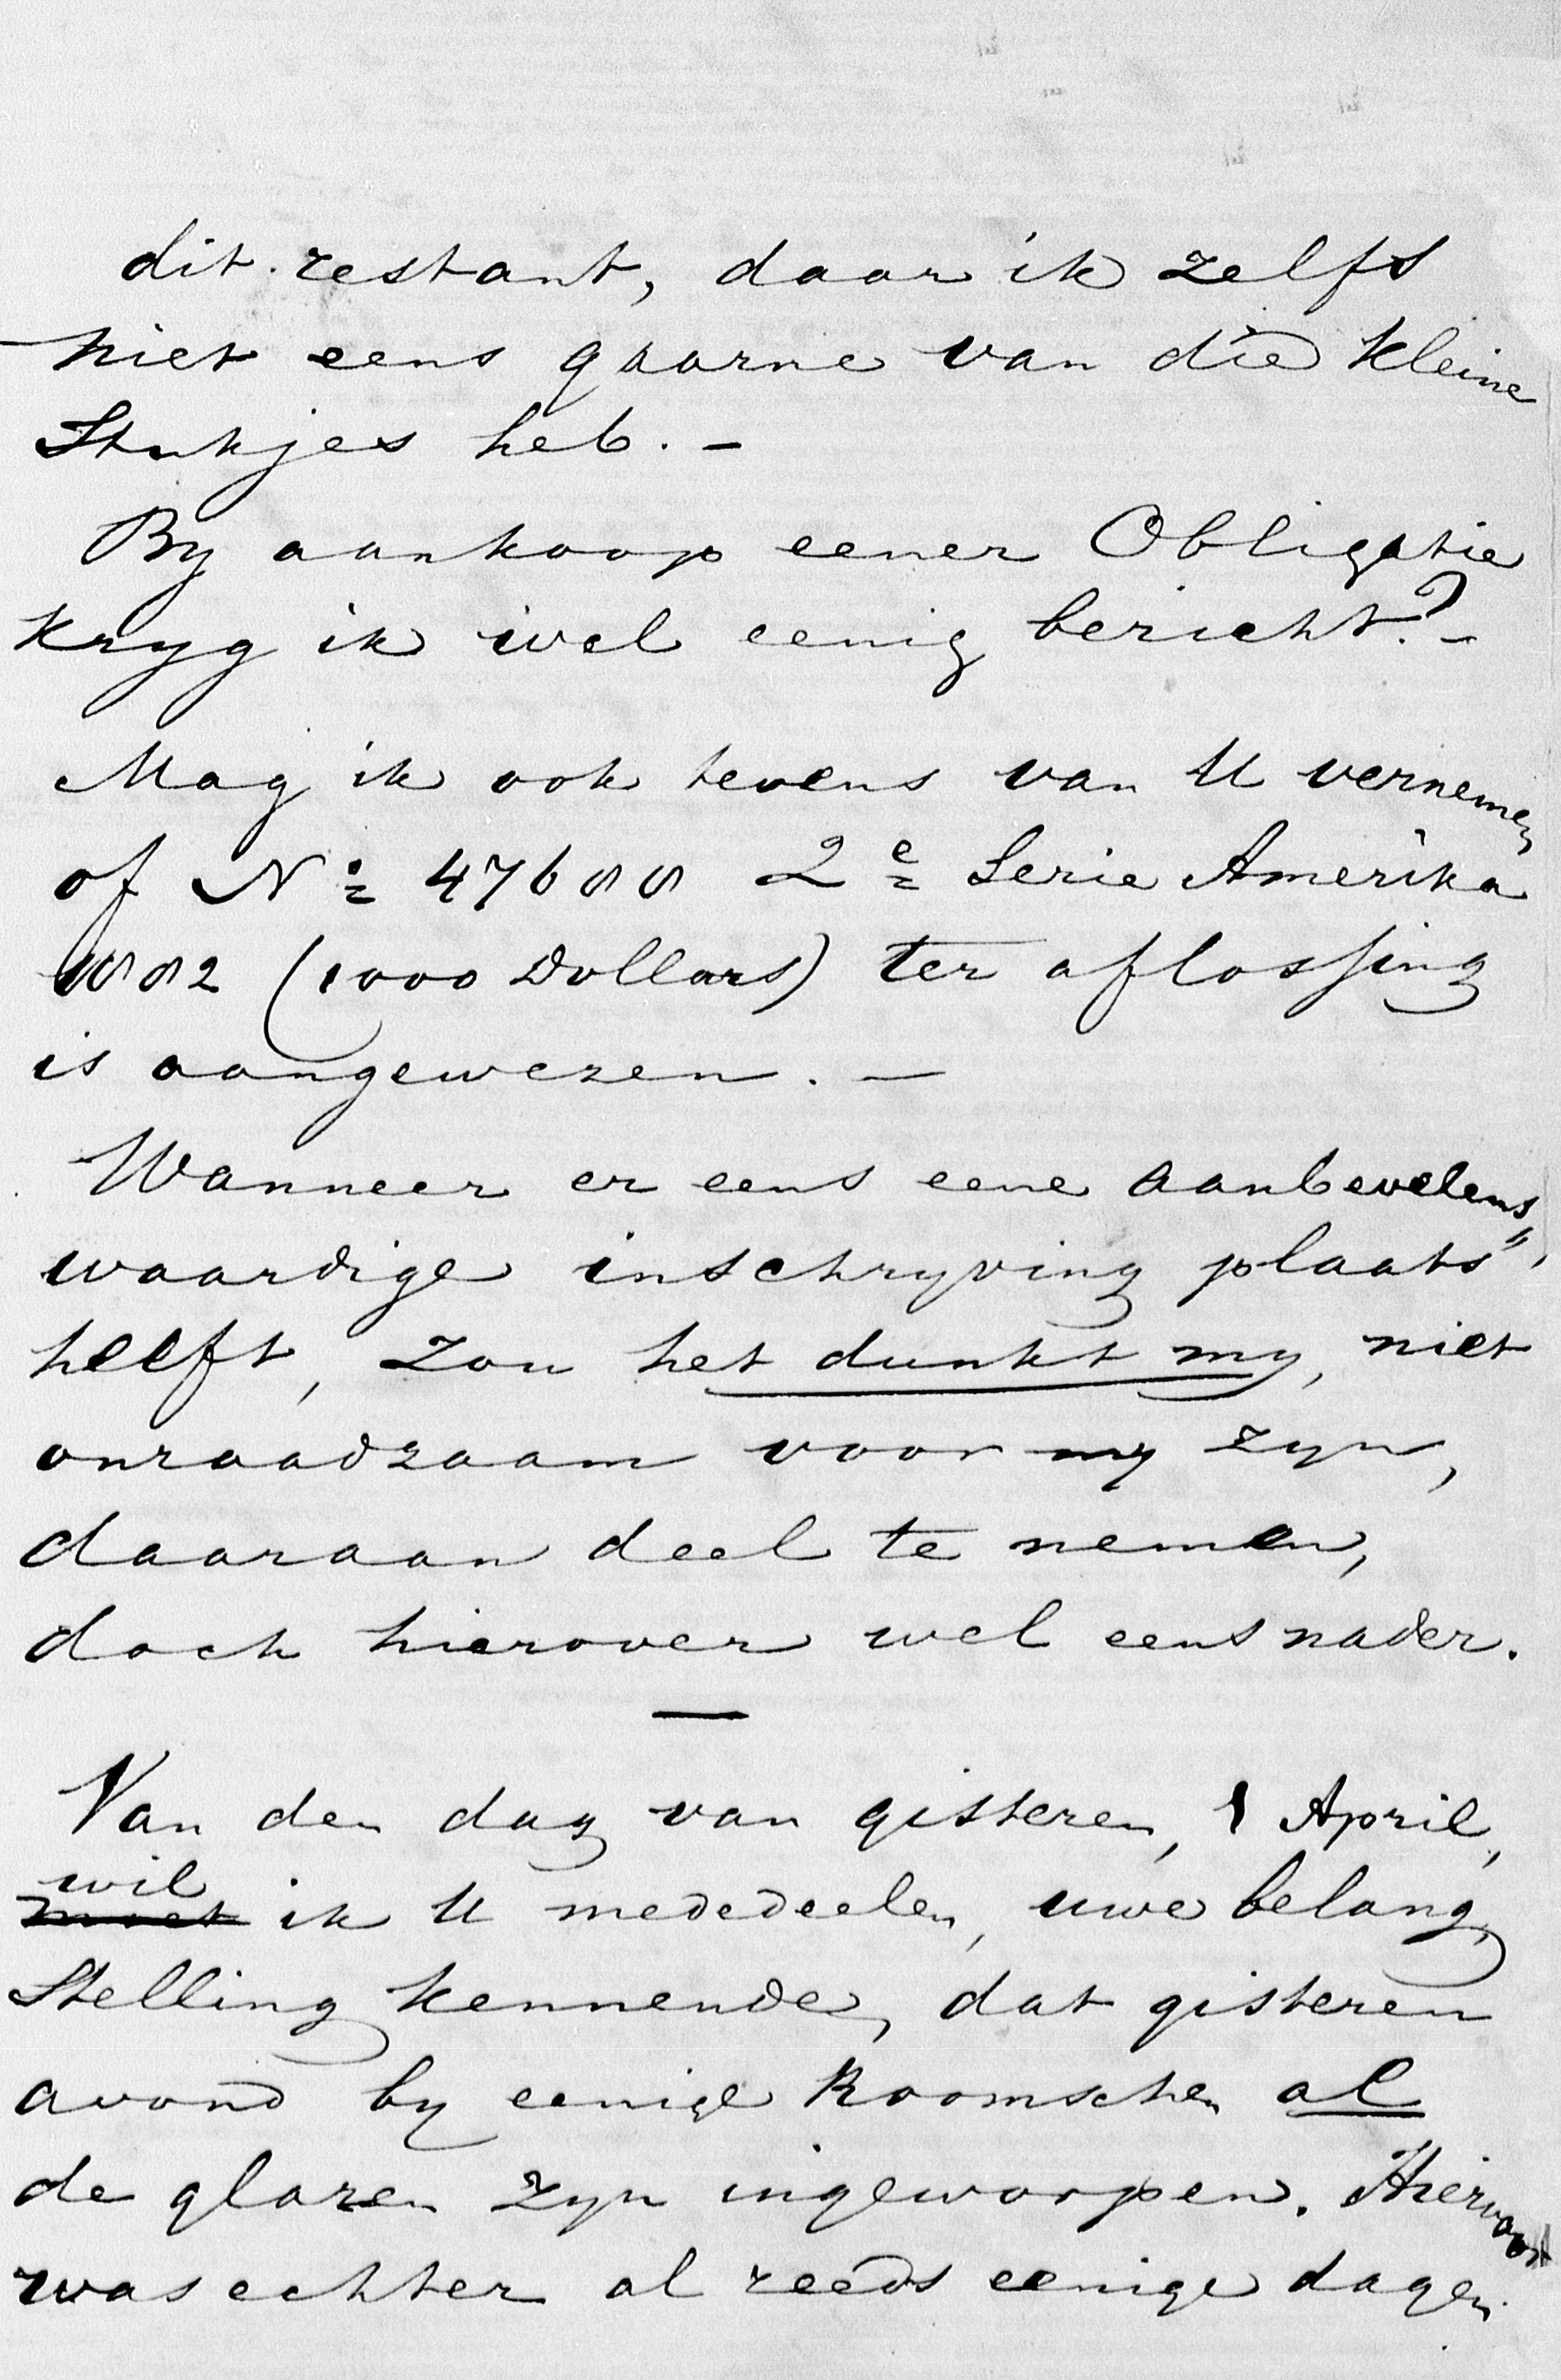 dit restant, daar ik zelfs
niet eens gaarne van die kleine
Stukjes heb. –
By aankoop eener Obligatie
kryg ik wel eenig bericht? –
Mag ik ook tevens van U vernemen
of No 47688 2e Serie Amerika
1882 (1000 Dollars) ter aflossing
is aangewezen. –
Wanneer er eens eene aanbevelens„
waardige inschryving plaats„
heeft, zou het dunkt my, niet
onraadzaam voor my zyn,
daaraan deel te nemen,
doch hierover wel eens nader.
—
Van den dag van gisteren, 1 April,
wil
moet ik U mededeelen, uwe belang,
Stelling kennende, dat gisteren
avond by eenige Roomschen al
de glazen zyn ingeworpen. Hiervoor
was echter al reeds eenige dagen